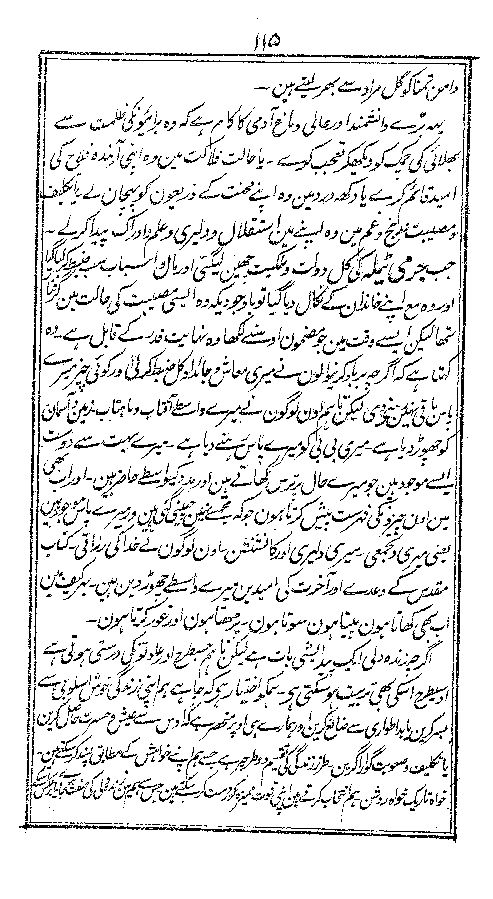 ۱۱۵
دامن تمنا کو گل مراد سے بھر لیتے ہین ۔
یہہ بڑے دانشمند اور عالی دماغ آدمی کا کام ہے کہ وہ برائیونکی ظلمت سے
بھلائی کی چمک کو دیکھکر تعجب کرے ۔ یا حالت فلاکت مین وہ اپنی آیندہ فلاح کی
امید قائم کرے یا دکھہ درد مین وہ اپنے صحت کے ذریعون کو پہچان لے یا تکلیف
و مصیبت رنج و غم مین وہ اپنے مین استقلال و دلیری و علم و ادراک پیدا کرلے ۔
جب جرمی ٹیلر کی کل دولت و ملکیت چھین لیگئی اور مال اسباب سب ضبط کیا گیا
اور وہ مع اپنے خاندان کے نکال دیا گیا تو باوجودیکہ وہ ایسی مصیبت کی حالت مین گرفتار
تھا لیکن ایسے وقت مین جو مضمون اوسنے لکھا وہ نہایت قدر کے قابل ہے ۔ وہ
کہتا ہے کہ اگرچہ برباد کرنیوالون نے میری معاش و جائداد کل ضبط کرلی اور کوئی چیز میرے
پاس باقی نہین چھوڑی لیکن تاہم اون لوگون نے میرے واسطے آفتاب و ماہتاب ۔ زمین و آسمان
کو چھوڑ دیا ہے ۔ میری بی بی کو میرے پاس رہنے دیا ہے ۔ میرے بہت سے دوست
ایسے موجود ہین جو میرے حال پر ترس کھاتے ہین اور مدد کیواسطے حاضر ہین ۔ اور اب بھی
مین اون چیزونکی فہرست پیش کرتا ہون جو کہ مجھسے نہین چھینی گئی ہین اور میرے پاس موجود ہین
یعنی میری دلجمعی ۔ میری دلیری اور کانشنس ۔ اون لوگون نے خدا کی رزاقی ۔ کتاب
مقدس کے وعدے اور آخرت کی امیدین میرے واسطے چھوڑ دین ہین ۔ بہرکیف مین
اب بھی کھاتا ہون پیتا ہون سوتا ہون ۔ پڑھتا ہون اور غور کرتا ہون ۔
اگرچہ زندہ دلی ایک پیدایشی بات ہے لیکن تاہم جسطرح اور عادتونکی درستی ہوتی ہے
اوسیطرح اسکی بھی تربیت ہوسکتی ہی ۔ ہمکو اختیار ہی کہ چاہے ہم اپنی زندگی خوش سلوبی سے
بسر کرین یا بداطواری سے ضائع کرین اور ہمارے ہی اوپر منحصر ہے کہ اس سے عیش و مسرت حاصل کرین
یا تکلیف و صعوبت گوارا کرین ۔ طرز زندگی کی تقسیم دو طرح پر ہے جسے ہم اپنے خواہش کے مطابق پسند کرسکتے ہین ۔
خواہ تاریک خواہ روشن ہم انتخاب کرتے ہین اپنی قوت ممیزہ کو درست کرسکتے ہین جس سے ہمین زندہ دلی کی